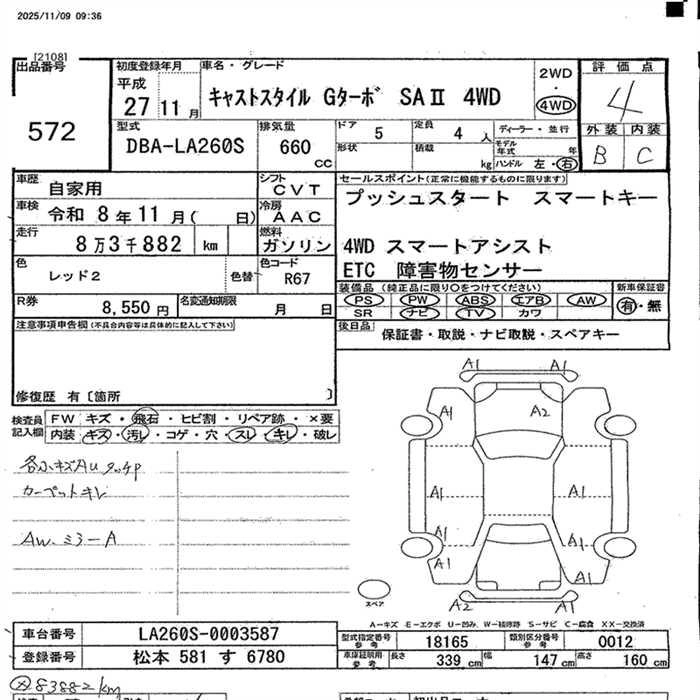 2025/11/09 09:36
[2108]
出品番号
572
初度登録年月
平成
27 11 月
車名・グレード
キャストスタイル Gターボ SAⅡ 4WD
2WD
・
4WD
評価点
4
外装 内装
B C
型式
DBA-LA260S
排気量
660 CC
ドア 5
定員 4 人
形状
積載 kg
ディーラー・並行
モデル年式 年
ハンドル 左・右
車歴 自家用
シフト CVT
車検 令和 8年11月( 日)
冷房 AAC
走行 8万3千882 km
燃料 ガソリン
色 レッド2
色替
色コード R67
R券 8,550円
名変通知期限 月 日
セールスポイント(正常に機能するものに限ります)
プッシュスタート スマートキー
4WD スマートアシスト
ETC 障害物センサー
装備品(純正品に限り○をつけてください)
PS PW ABS エアB AW
SR ナビ TV カワ
新車保証書
有・無
後日品
保証書・取説・ナビ取説・スペアキー
注意事項申告欄(不具合内容等は具体的に記入して下さい)
修復歴 有〔箇所 〕
検査員記入欄
FW キズ・飛石・ヒビ割・リペア跡・×要
内装 キズ・汚レ・コゲ・穴・スレ・キレ・破レ
各小キズAU タッチP
カーペットキレ
AW.ミラーA
A1 A1
A1 A2
A1 A1
A1 A1
A1 A1
A2 A1
スペア
A-キズ E-エクボ U-凹み、W-補修跡 S-サビ C-腐食 XX-交換済
車台番号 LA260S-0003587
登録番号 松本 581 す 6780
型式指定番号 参考 18165
類別区分番号 参考 0012
車庫証明用 参考 長さ 339 cm 幅 147 cm 高さ 160 cm
83882km